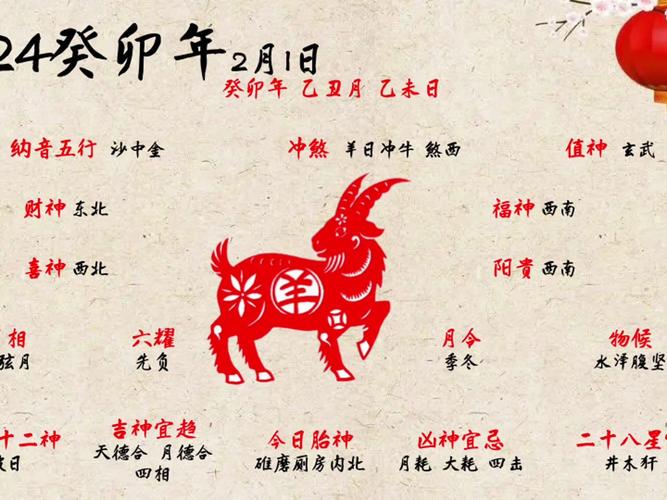 24癸卯年 2月1日
癸卯年 乙丑月 乙未日
纳音五行 沙中金 冲煞 羊日冲牛 煞西 值神 玄武
财神 东北 福神 西南
喜神 西北 阳贵 西南
羊
相 六耀 月令 物候
弦月 先负 季冬 水泽腹坚
十二神 吉神宜趋 今日胎神 凶神宜忌 二十八星
破日 天德合 月德合 碓磨厕房内北 月耗 大耗 四击 井木犴
四相